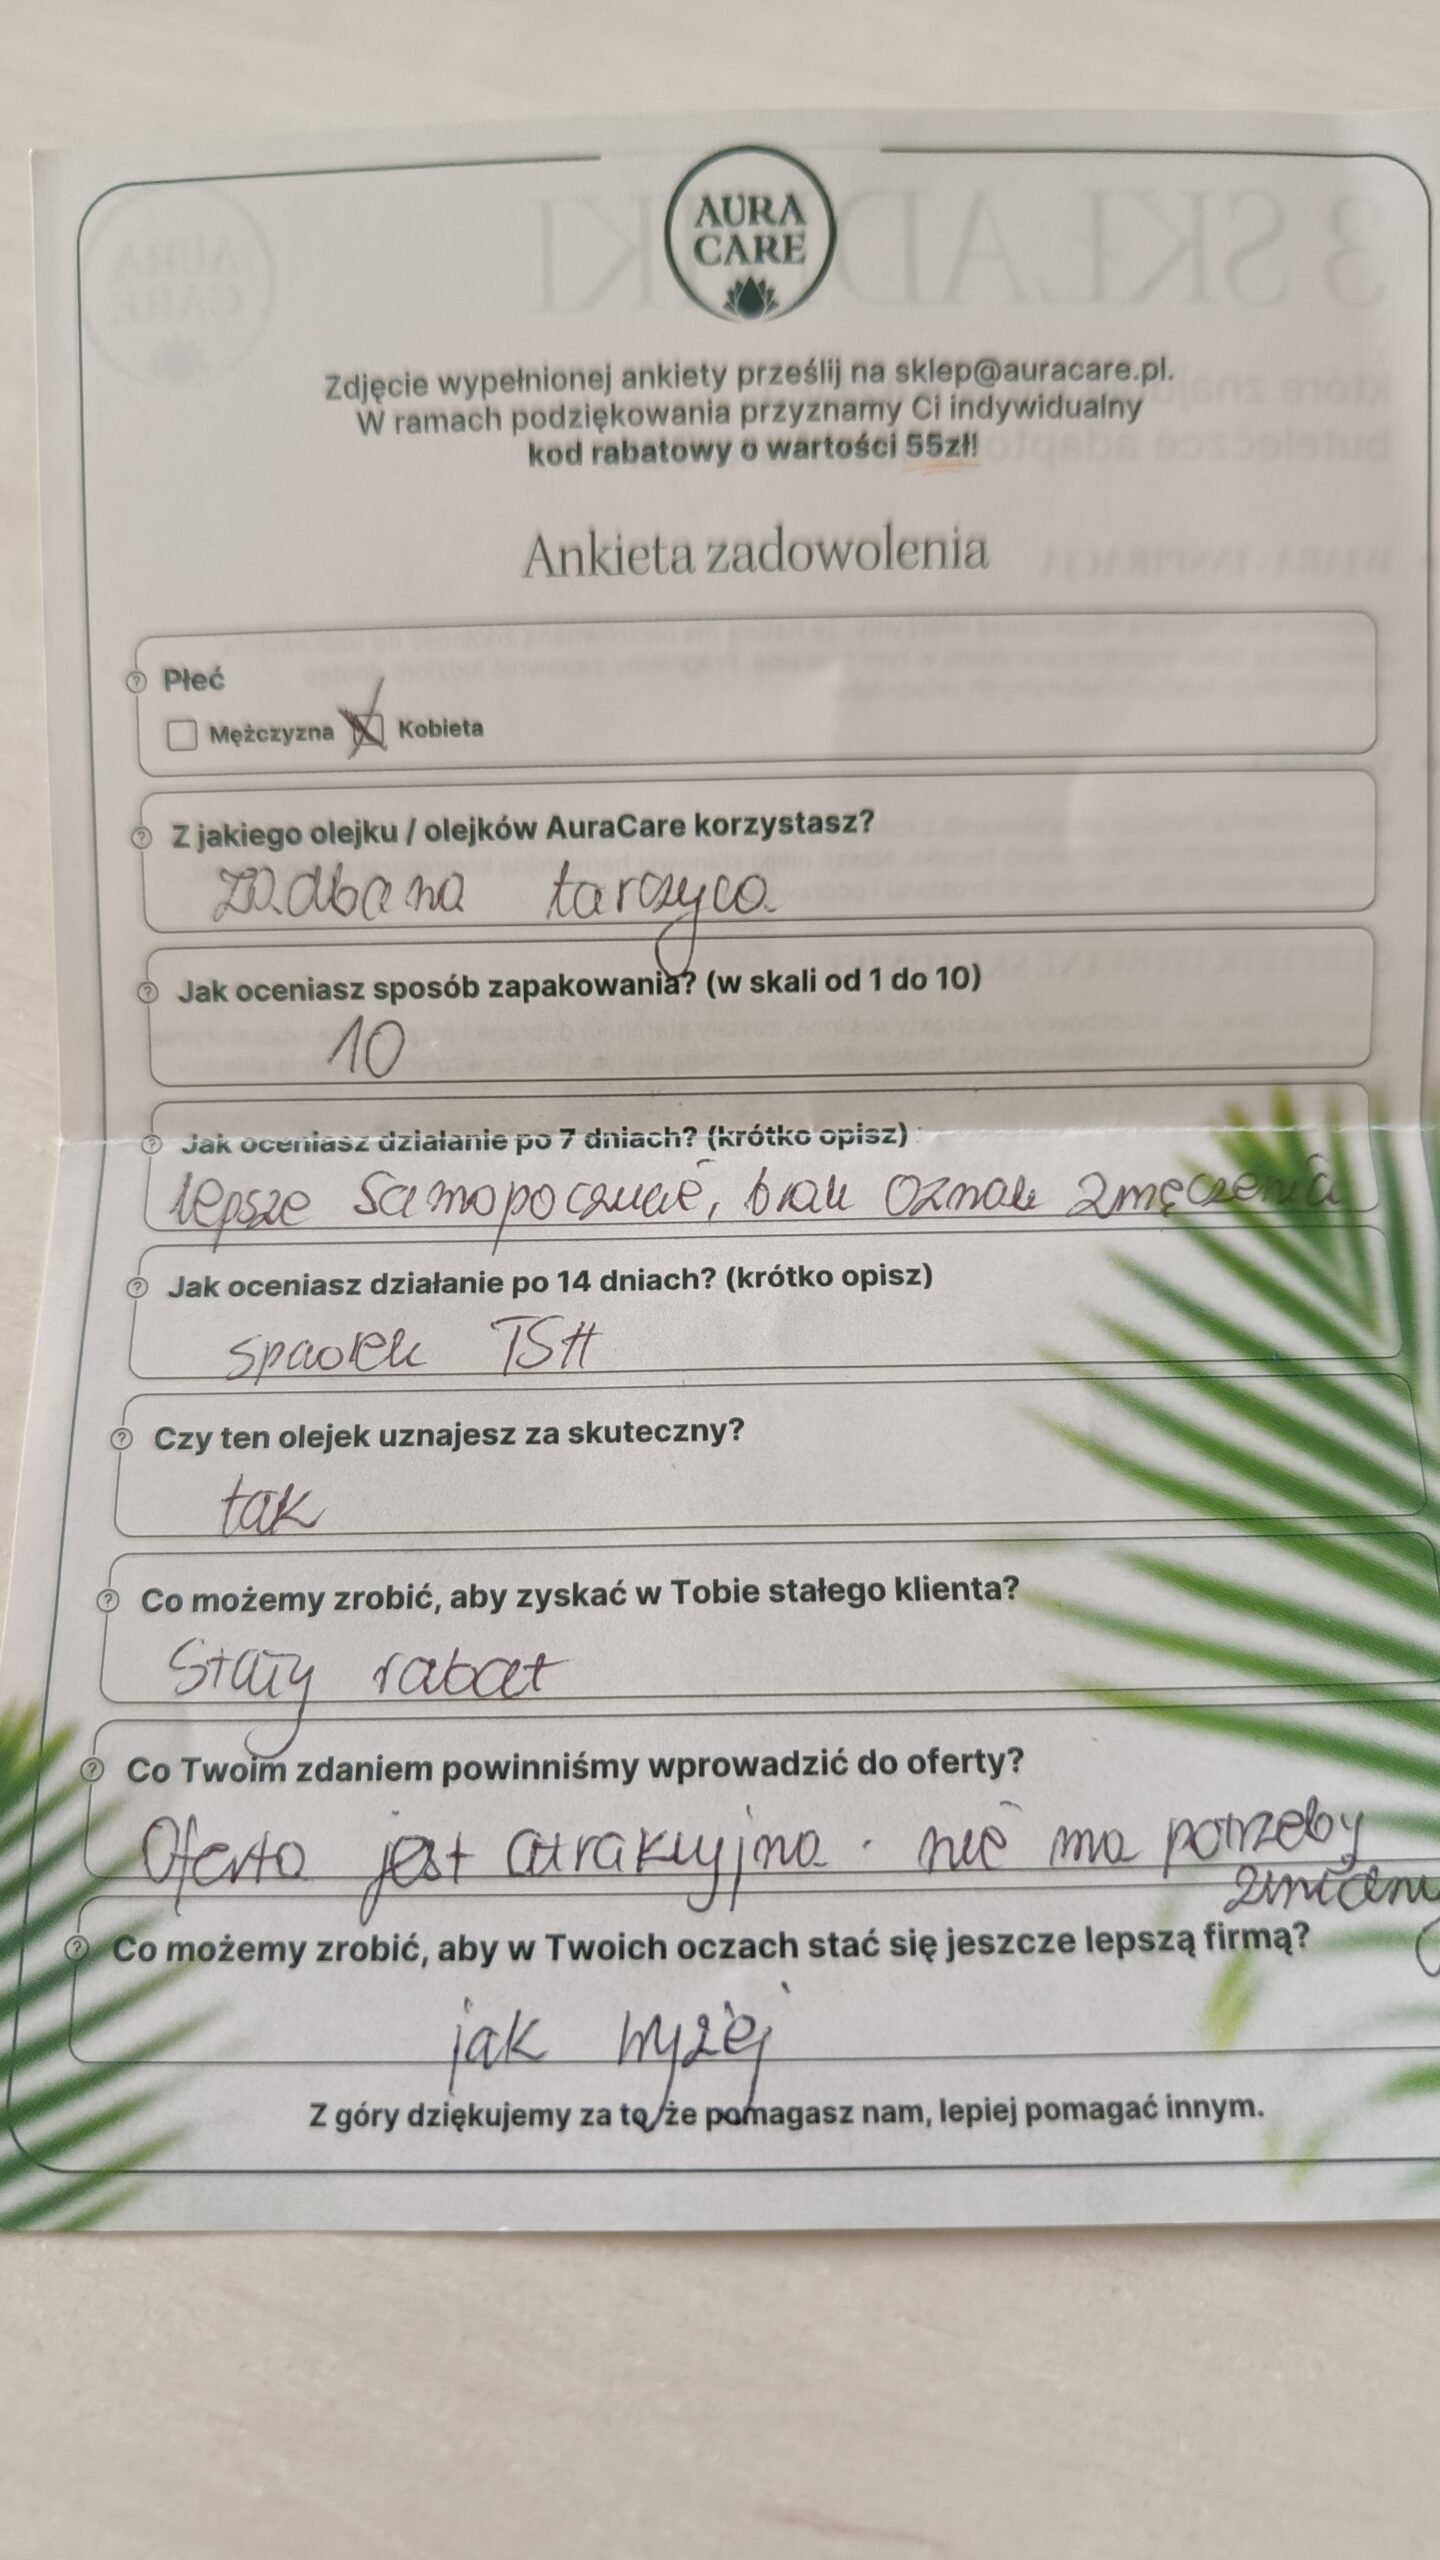 AURA
CARE
Zdjęcie wypełnionej ankiety prześlij na sklep@auracare.pl.
W ramach podziękowania przyznamy Ci indywidualny
kod rabatowy o wartości 55zł!
Ankieta zadowolenia
Płeć
Mężczyzna Kobieta
Z jakiego olejku / olejków AuraCare korzystasz?
Zadbana tarczyca
Jak oceniasz sposób zapakowania? (w skali od 1 do 10)
10
Jak oceniasz działanie po 7 dniach? (krótko opisz)
lepsze samopoczucie, brak oznak zmęczenia
Jak oceniasz działanie po 14 dniach? (krótko opisz)
spadek TSH
Czy ten olejek uznajesz za skuteczny?
tak
Co możemy zrobić, aby zyskać w Tobie stałego klienta?
Stały rabat
Co Twoim zdaniem powinniśmy wprowadzić do oferty?
Oferta jest atrakcyjna. nie ma potrzeby
zmiany
Co możemy zrobić, aby w Twoich oczach stać się jeszcze lepszą firmą?
jak wyżej
Z góry dziękujemy za to, że pomagasz nam, lepiej pomagać innym.